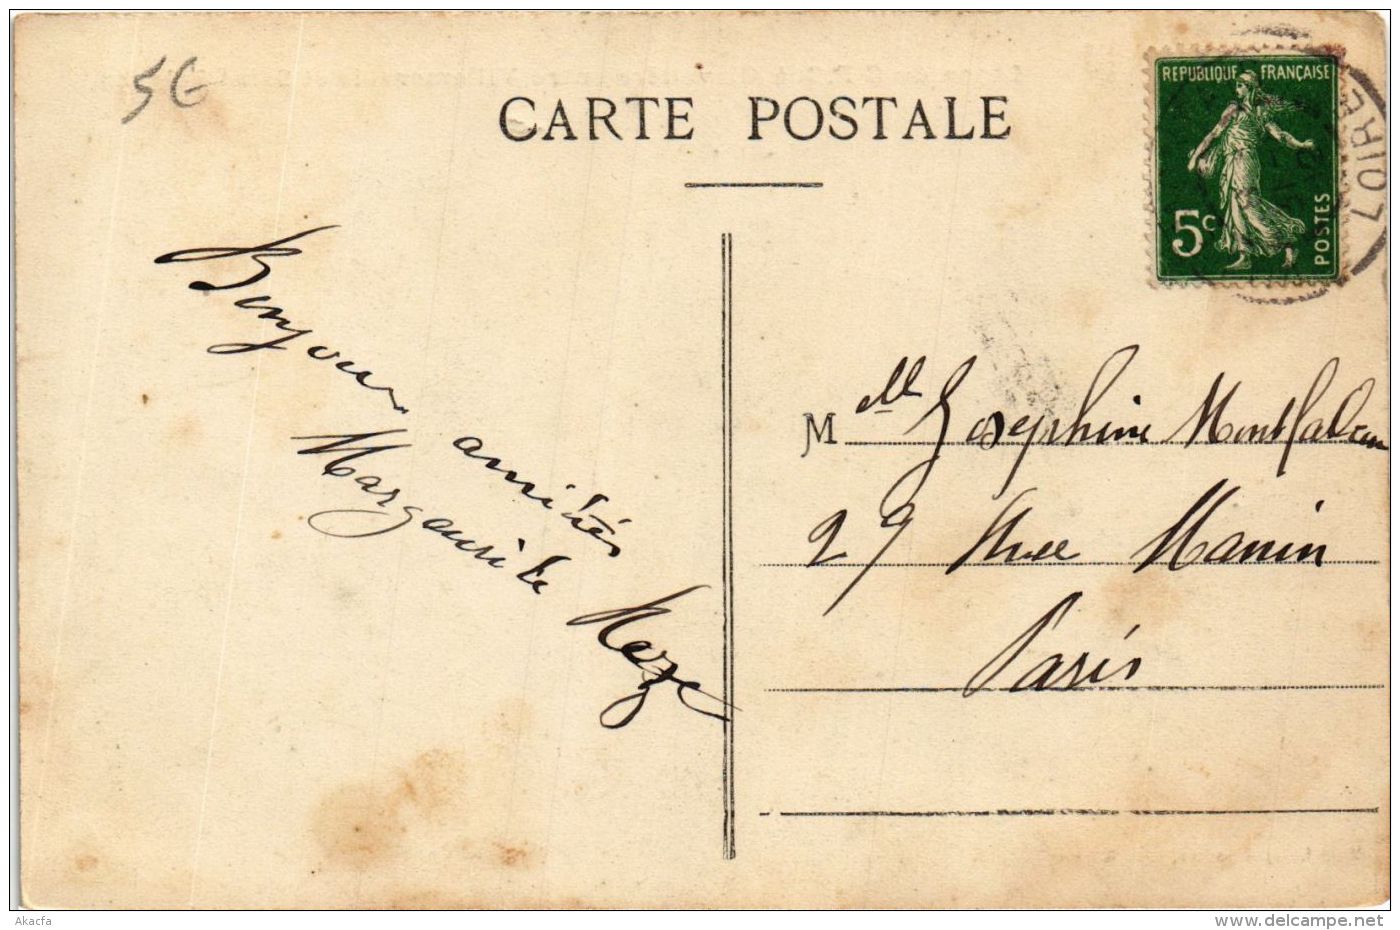 5€
CARTE POSTALE
REPUBLIQUE FRANÇAISE
5c
POSTES
LOIRE
Bonjour
amitiés
Marguerite
Mlle Josephine
29 Rue Manin
Paris
Akacfa
www.delcampe.net